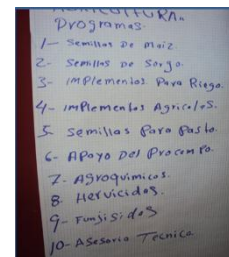 AGRICULTURA.
Programas.
1- Semillas De Maiz.
2- Semillas De Sorgo.
3- Implementos Para Riego.
4- Implementos Agricolas.
5 Semillas Para Pasto.
6- Apoyo Del Procampo.
7- Agroquimicos.
8- Hervicidas.
9- Funjisidas
10- Asesoria Tecnica